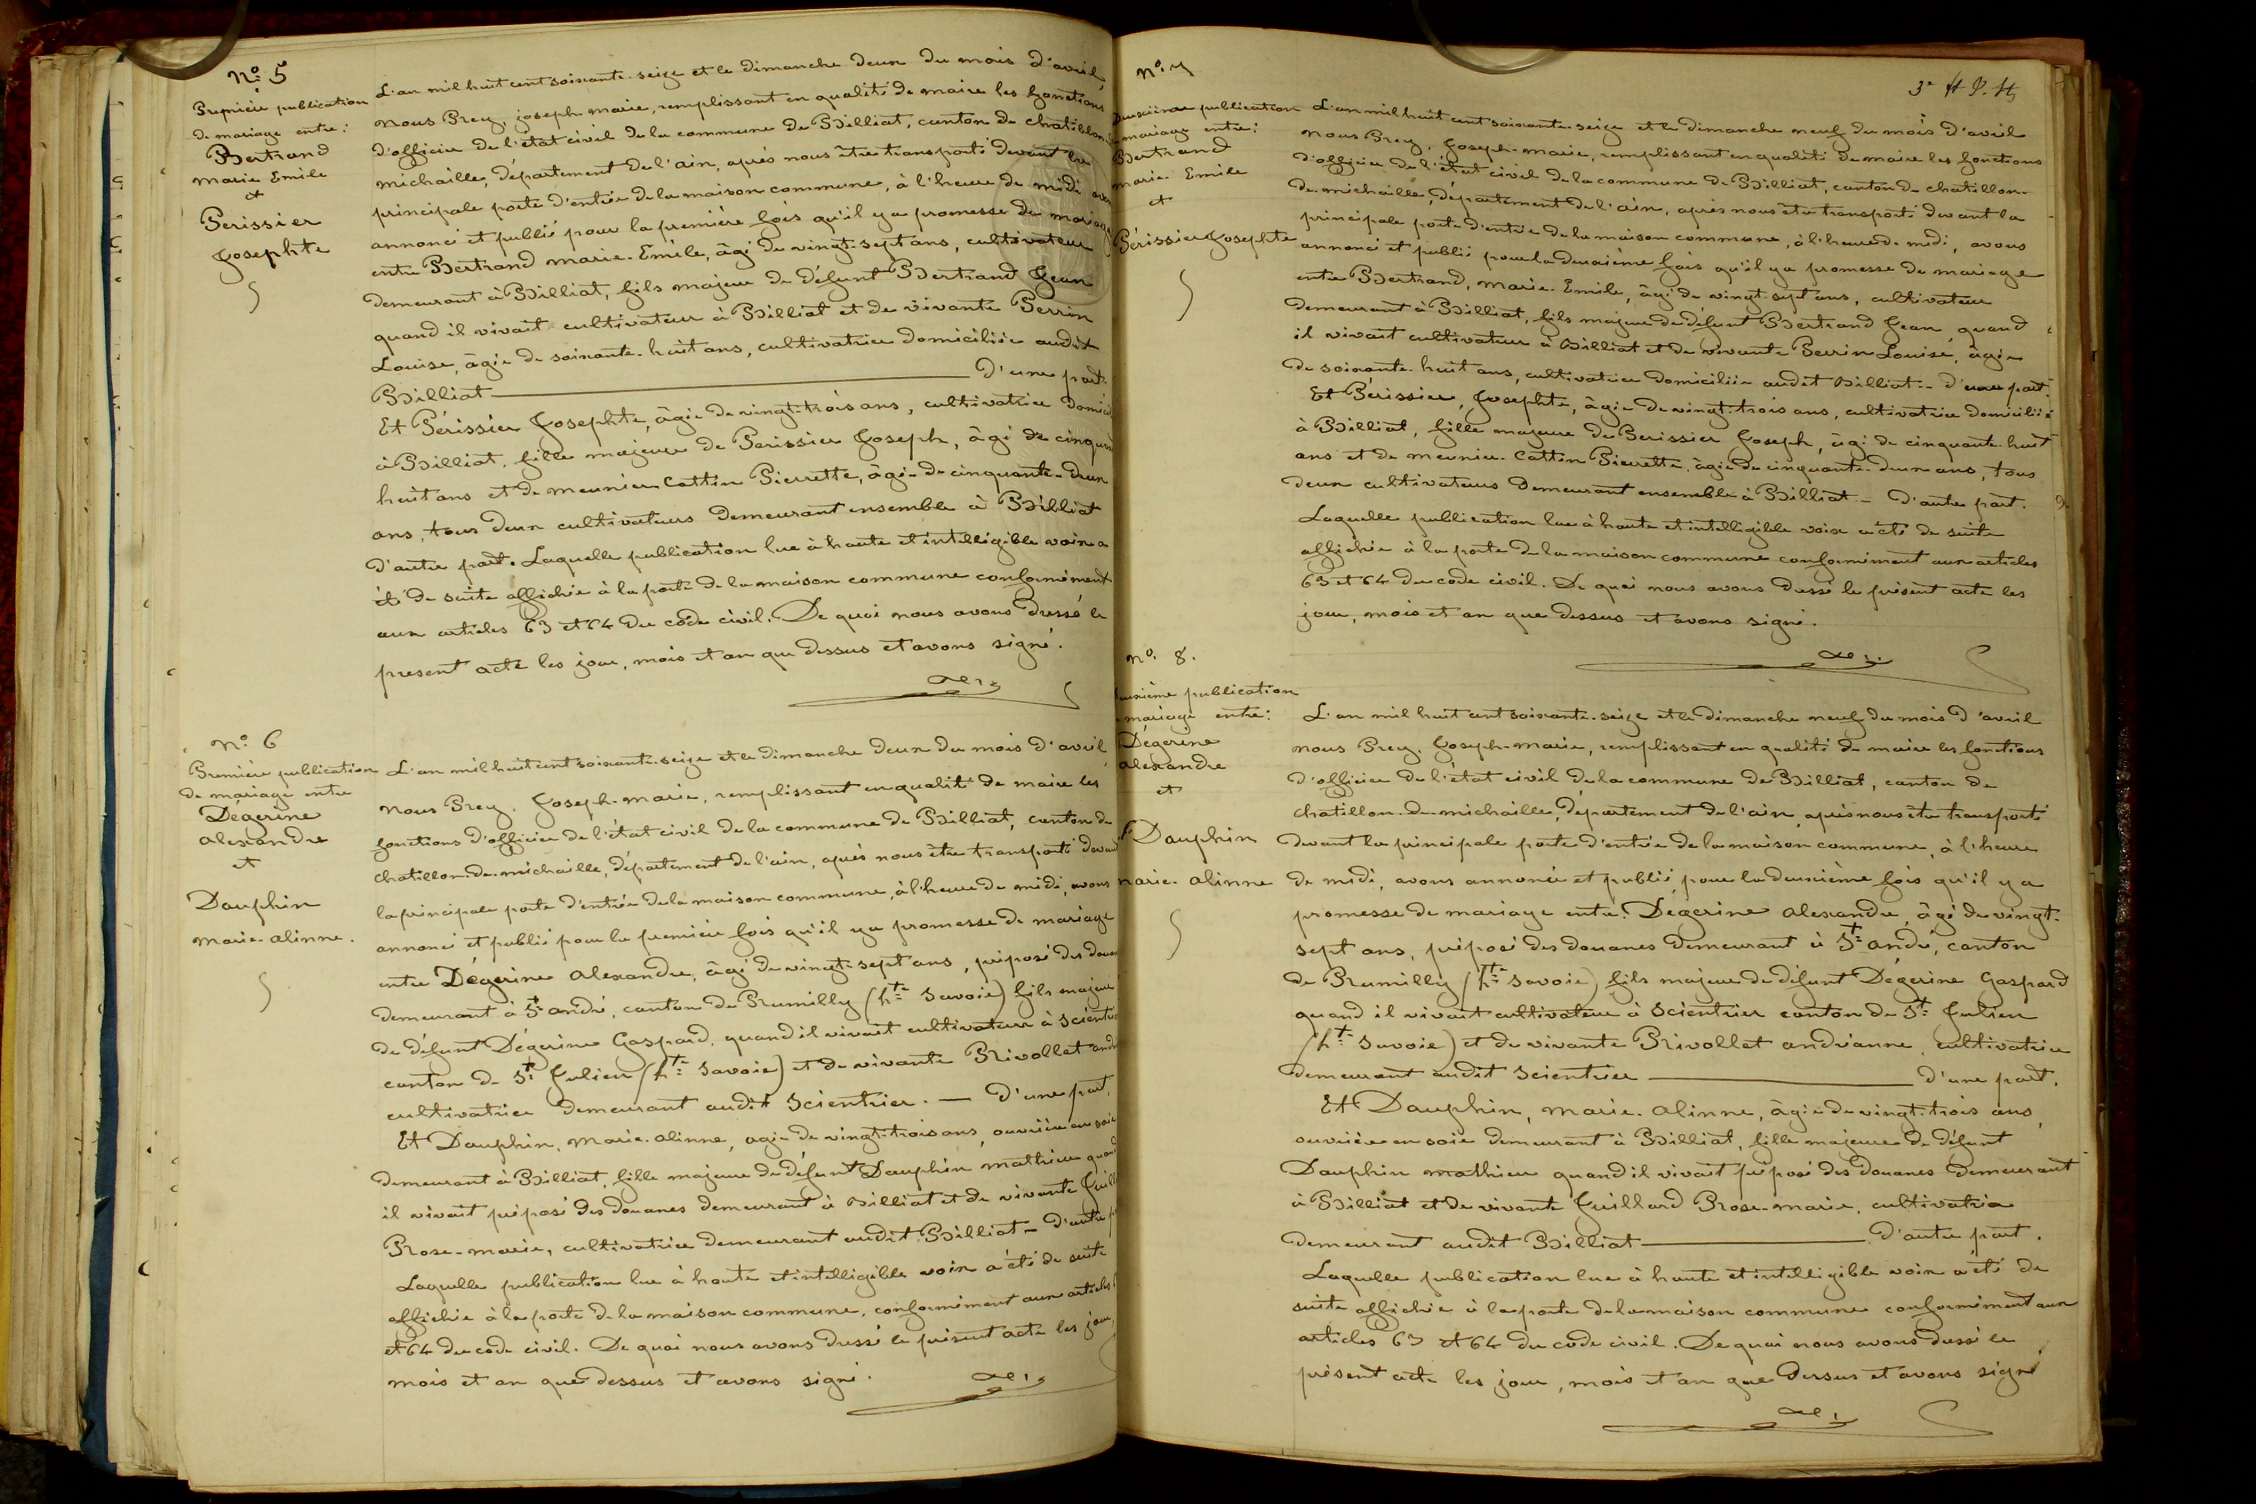 Nº 5
Première publication
de mariage entre:
Bertrand
Marie Emile
et
Perissier
Josephte
L'an mil huit cent soixante-seize et le dimanche deux du mois d'avril,
nous Prey, joseph marie, remplissant en qualité de maire les fonctions
d'officier de l'état civil de la commune de Billiat, canton de chatillon de
michaille, département de l'ain, après nous être transporté devant la
principale porte d'entrée de la maison commune, à l'heure de midi avons
annoncé et publié pour la première fois qu'il y a promesse de mariage
entre Bertrand marie-Emile, âgé de vingt-sept ans, cultivateur
demeurant à Billiat, fils majeur de défunt Bertrand Jean
quand il vivait cultivateur à Billiat et de vivante Perrin
Louise, âgée de soixante-huit ans, cultivatrice domiciliée audit
Billiat — d'une part.
Et Périssier Josephte, âgée de vingt-trois ans, cultivatrice domici
à Billiat, fille majeure de Perissier Joseph, âgé de cinquan
huit ans et de meunier Cattin Pierrette, âgée de cinquante-deux
ans, tous deux cultivateurs demeurant ensemble à Billiat
d'autre part. Laquelle publication lue à haute et intelligible voix a
été de suite affichée à la porte de la maison commune conformément
aux articles 63 et 64 du code civil. De quoi nous avons dressé le
present acte les jour, mois et an que dessus et avons signé.
Nº 6
Première publication
de mariage entre
Dégerine
alexandre
et
Dauphin
marie-alinne.
L'an mil huit cent soixante-seize et le dimanche deux du mois d'avril,
nous Prey, Joseph-marie, remplissant en qualité de maire les
fonctions d'officier de l'état civil de la commune de Billiat, canton de
chatillon-de-michaille, département de l'ain, après nous être transporté devant
la principale porte d'entrée de la maison commune, à l'heure de midi, avons
annoncé et publié pour la première fois qu'il y a promesse de mariage
entre Dégerine alexandre, âgé de vingt-sept ans, préposé des douan
demeurant à St andré, canton de Rumilly (hte Savoie) fils majeur
de défunt Dégerine Gaspard, quand il vivait cultivateur à Scientri
canton de St Julien (hte Savoie) et de vivante Rivollet andr
cultivatrice demeurant audit Scientrier. — D'une part,
Et Dauphin, marie-alinne, agée de vingt-trois ans, ouvrière en soie
demeurant à Billiat, fille majeure de défunt Dauphin mathieu quand
il vivait préposé des douanes demeurant à Billiat et de vivante Juill
Rose-marie, cultivatrice demeurant audit Billiat — D'autre p
Laquelle publication lue à haute et intelligible voix a été de suite
affichée à la porte de la maison commune, conformément aux articles
et 64 du code civil. De quoi nous avons dressé le présent acte les jour,
mois et an que dessus et avons signé.
3e
Nº 7
Deuxième publication
mariage entre:
Bertrand
marie-Emile
et
Périssier Josephte
L'an mil huit cent soixante-seize et le dimanche neuf du mois d'avril
nous Prey, Joseph-marie, remplissant en qualité de maire les fonctions
d'officier de l'état civil de la commune de Billiat, canton de chatillon-
de-michaille, département de l'ain, après nous être transporté devant la
principale porte d'entrée de la maison commune, à l'heure de midi, avons
annoncé et publié pour la deuxième fois qu'il y a promesse de mariage
entre Bertrand, marie-Emile, âgé de vingt-sept ans, cultivateur
demeurant à Billiat, fils majeur de défunt Bertrand Jean, quand
il vivait cultivateur à Billiat et de vivante Perrin Louise, âgée
de soixante-huit ans, cultivatrice domiciliée audit Billiat - d'une part.
Et Périssier, Josephte, âgée de vingt-trois ans, cultivatrice domiciliée
à Billiat, fille majeure de Perissier Joseph, âgé de cinquante-huit
ans et de meunier-Cattin Pierrette, âgée de cinquante-deux ans, tous
deux cultivateurs demeurant ensemble à Billiat - D'autre part.
Laquelle publication lue à haute et intelligible voix a été de suite
affichée à la porte de la maison commune conformément aux articles
63 et 64 du code civil. De quoi nous avons dressé le présent acte les
jour, mois et an que dessus et avons signé.
Nº 8.
uxième publication
mariage entre:
Dégerine
alexandre
et
Dauphin
marie-alinne
L'an mil huit cent soixante-seize et le dimanche neuf du mois d'avril
nous Prey, Joseph-marie, remplissant en qualité de maire les fonctions
d'officier de l'état civil de la commune de Billiat, canton de
chatillon-de-michaille, département de l'ain, après nous être transporté
devant la principale porte d'entrée de la maison commune, à l'heure
de midi, avons annoncé et publié, pour la deuxième fois qu'il y a
promesse de mariage entre: Dégerine alexandre, âgé de vingt-
sept ans, préposé des douanes demeurant à St andré, canton
de Rumilly (hte Savoie) fils majeur de défunt Dégerine Gaspard
quand il vivait cultivateur à Scientrier canton de St Julien
(hte Savoie) et de vivante Rivollet andrianne, cultivatrice
demeurant audit Scientrier — d'une part.
Et Dauphin, marie-alinne, âgée de vingt-trois ans,
ouvrière en soie demeurant à Billiat, fille majeure de défunt
Dauphin mathieu quand il vivait préposé des douanes demeurant
à Billiat et de vivante Juillard Rose-marie, cultivatrice
demeurant audit Billiat — d'autre part.
Laquelle publication lue à haute et intelligible voix a été de
suite affichée à la porte de la maison commune conformément aux
articles 63 et 64 du code civil. De quoi nous avons dressé le
présent acte les jour, mois et an que dessus et avons signé